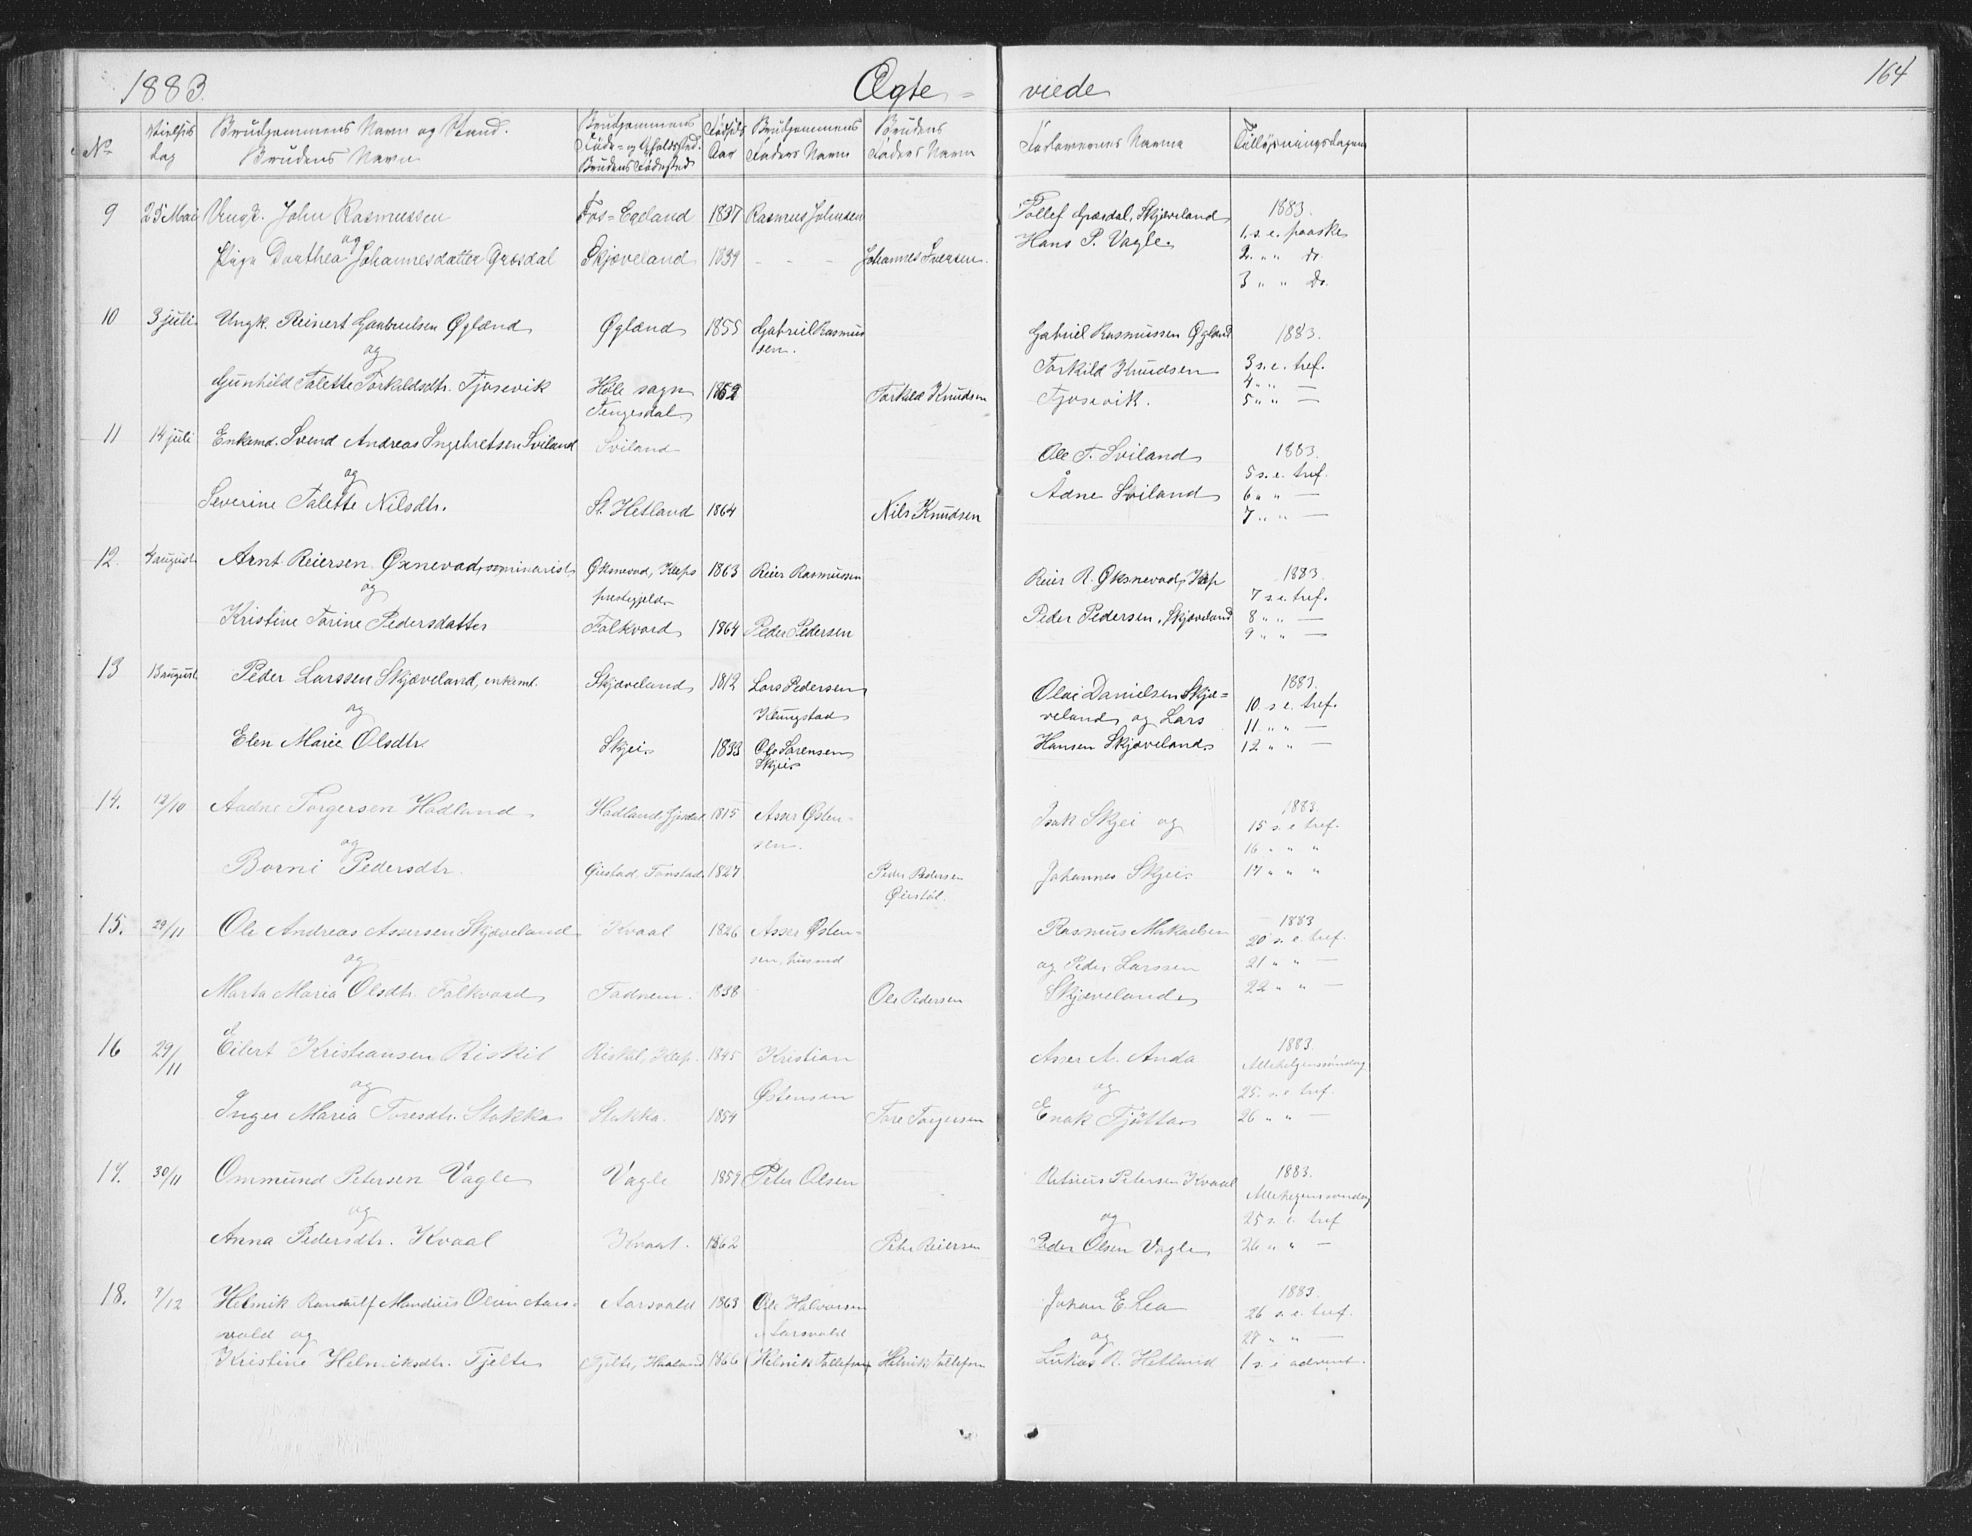 1883. Ægte = viede 164
No Vielses Dag Brudgommens Navn og Stand. Brudens Navn Brudgommens Føde- og Opholdssted. Brudens Fødested Fødsels Aar Brudgommens Faders Navn Brudens Faders Navn Forlovernes Navne Tillysningsdagene
9 25 Mai Ungk. John Rasmussen Fos=Egeland 1837 Rasmus Johnsen Tollef Græsdal, Skjæveland 1883.
og Hans P. Vagle. 1. s. e. paaske
Pige Dorthea Johannesdatter Græsdal Skjæveland 1839 - - - Johannes Iversen. 2. " " do
3 " " do.
10 3 juli. Ungk. Reinert Gabrielsen Øgland Øgland 1855 Gabriel Rasmus Gabriel Rasmussen Øgland 1883.
og sen. 3 s. e. tref.
Gunhild Talette Torkildsdtr. Tjosevik Høle sogn 1862 Torkild Knudsen Torkild Knudsen 4 " " —
Tengesdal Tjosevik. 5 " " —
11 14 juli Enkemd. Svend Andreas Ingebretsen Sviland Sviland Ole T. Sviland 1883.
og 5 s. e. tref.
Severine Talette Nilsdtr. St. Hetland 1864 Nils Knudsen Ådne Sviland 6 " " —
7 " " —
12. 4 august. Arnt Reiersen Øxnevad, seminarist Øksnevad, Kleps 1863 Reier Rasmussen Reier R. Øksnevad, Klep 1883.
og prestegjeld 7 s. e. tref.
Kristine Torine Pedersdatter Folkvord 1864 Peder Pedersen Peder Pedersen, Skjæveland 8 " " —
9 " " —
13 13 august. Peder Larssen Skjæveland, enkemd. Skjæveland 1812 Lars Pedersen Olai Danielsen Skjæ= 1883.
og Klungstad veland og Lars 10 s e. tref.
Elen Marie Olsdtr. Skjei 1833 Ole Sørensen Hansen Skjæveland 11 " " —
Skjei 12 " " —
14. 12/10 Aadne Torgersen Hadland Hadland, Gjesdal 1815 Asser Østen- Isak Skjei og 1883.
og sen. 15 s. e tref.
Borni Pedersdtr. 1827 Peder Pedersen Johannes Skjei. 16 " " "
17 " " "
15. 29/11 Ole Andreas Assersen Skjæveland Kvaal 1826 Asser Østen- Rasmus Mikaelsen 1883
og sen, husmd og Peder Larssen 20 s. e. tref.
Marta Maria Olsdtr. Folkvord 1838 Ole Pedersen Skjæveland 21 " " —
22 " " —
16 29/11 Eilert Kristiansen Riskil Riskil, Klep. 1845 Kristian Asser A. Anda 1883.
og Østensen og Allehelgenssøndag
Inger Maria Toresdtr. Stokka Stokka. 1854 Tore Torgersen Enok Tjøtta 25. s. e. tref.
26 " " —
17. 30/11 Ommund Petersen Vagle Vagle 1859 Peter Olsen Petersen Kvaal 1883.
og og Allehegenssøndag
Anna Pedersdtr. Kvaal Kvaal. 1862 Peder Reiersen Peder Olsen Vagle 25 s. e. tref
26 " " —
18. 7/12 Helmik Randulf Mandius Olsen Aars= Aarsvold 1863 Ole Halvorsen Johan E. Lea 1883.
vold og Aarsvold og 26 s. e. tref.
Kristine Helmiksdtr. Tjelte Tjelte, Haaland 1866 (Helmik Tollefsen) Helmik Tollefsen Lukas R. Hetland 27 " " —
1 s. e advent.